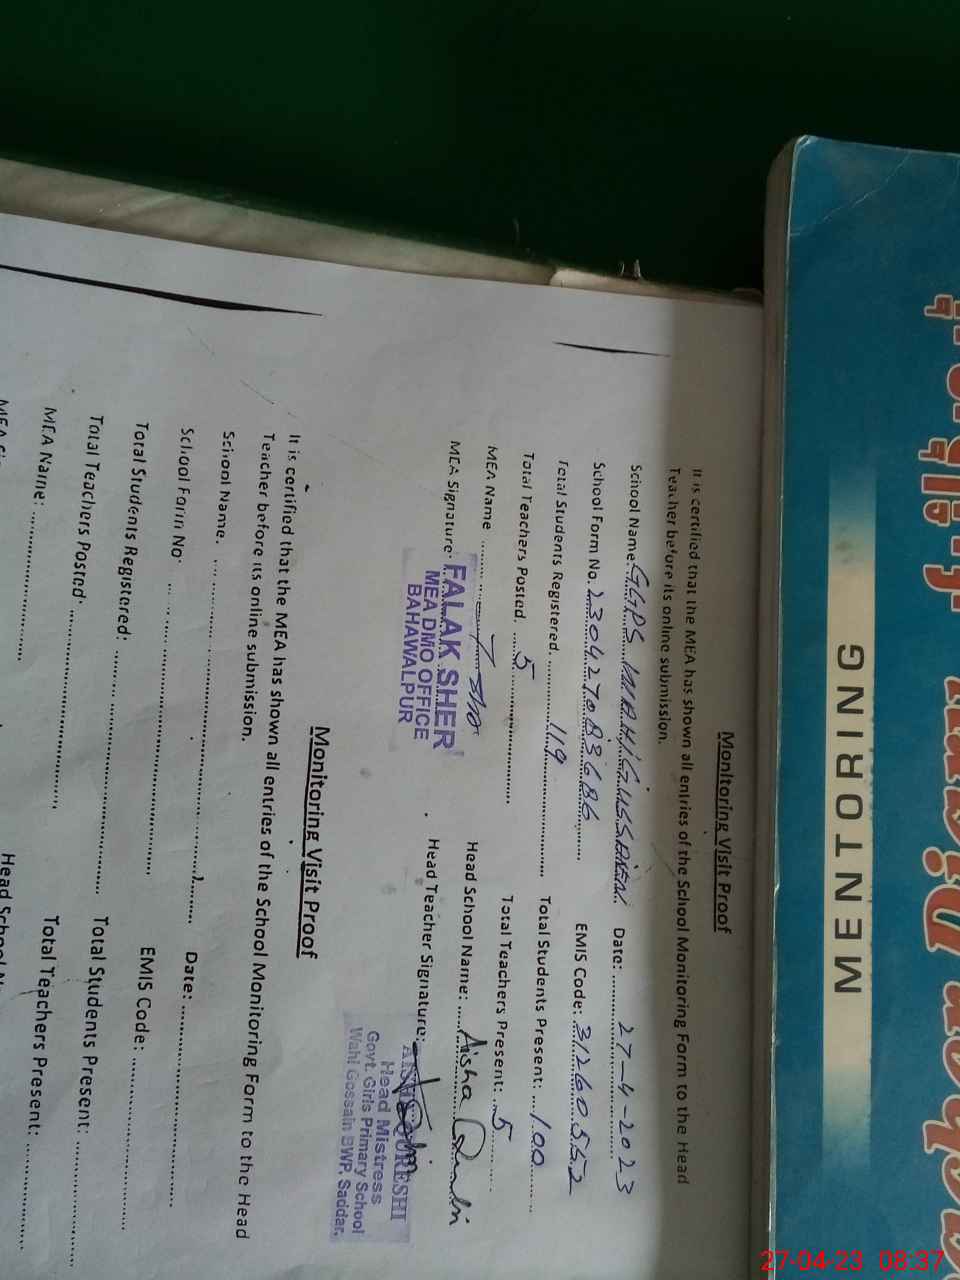 Monitoring Visit Proof
It is certified that the MEA has shown all entries of the School Monitoring Form to the Head
Teacher before its online submission.
School Name: GGPS Date: 27-4-2023
School Form No. 230427083686 EMIS Code: 31260552
Total Students Registered. 119 Total Students Present: 100
Total Teachers Posted. 5 Total Teachers Present: 5
MEA Name Head School Name: Aisha
MEA Signature: Head Teacher Signature:
FALAK SHER
MEA DMO OFFICE
BAHAWALPUR
Head Mistress
Govt. Girls Primary School
Wahi Gossain BWP, Saddar.
Monitoring Visit Proof
It is certified that the MEA has shown all entries of the School Monitoring Form to the Head
Teacher before its online submission.
School Name. Date:
School Form No EMIS Code:
Total Students Registered: Total Students Present:
Total Teachers Posted. Total Teachers Present:
MEA Name:
MENTORING
27-04-23 08:37